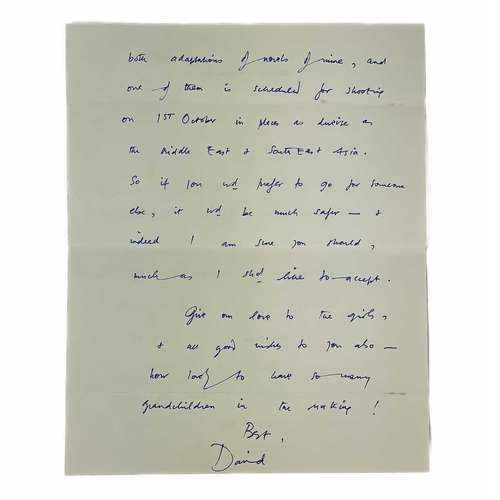 both adaptations of novels of mine, and
one of them is scheduled for shooting
on 1ST October in places as diverse as
the Middle East & South East Asia.
So if you wd prefer to go for someone
else, it wd be much safer — &
indeed I am sure you should,
much as I shd like to accept.
Give our love to the girls,
& all good wishes to you also —
how lovely to have so many
grandchildren in the making!
Best,
David